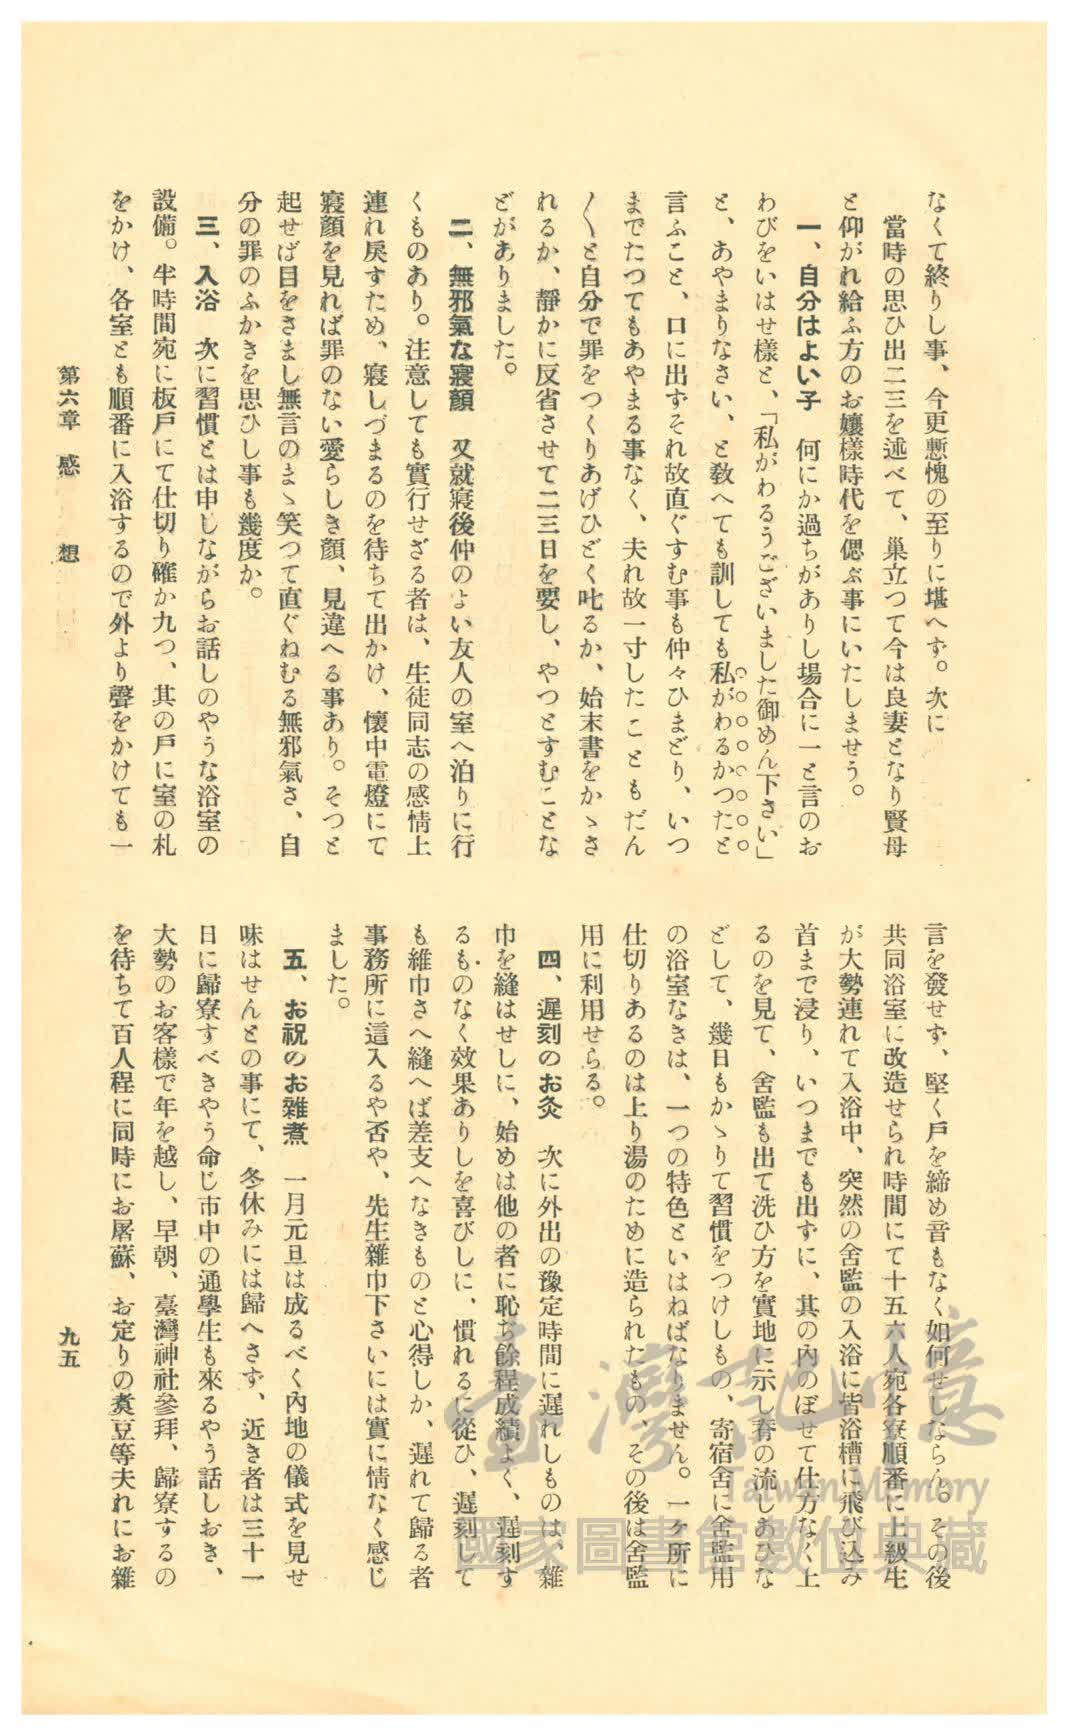 なくて終りし事、今更慙愧の至りに堪へす。次に
當時の思ひ出二三を述べて、巣立つて今は良妻となり賢母
と仰がれ給ふ方のお孃樣時代を偲ぶ事にいたしませう。
一、自分はよい子　何にか過ちがありし場合に一と言のお
わびをいはせ樣と、「私がわるうございました御めん下さい」
と、あやまりなさい、と敎へても訓しても私がわるかつたと
言ふこと、口に出すそれ故直ぐすむ事も仲々ひまどり、いつ
までたつてもあやまる事なく、夫れ故一寸したこともだん
〱と自分で罪をつくりあげひどく叱るか、始末書をかゝさ
れるか、靜かに反省させて二三日を要し、やつとすむことな
どがありました。
二、無邪氣な寢顏　又就寢後仲のよい友人の室へ泊りに行
くものあり。注意しても實行せざる者は、生徒同志の感情上
連れ戾すため、寢しづまるのを待ちて出かけ、懷中電燈にて
寢顏を見れば罪のない愛らしき顏、見違へる事あり。そつと
起せば目をさまし無言のまゝ笑つて直ぐねむる無邪氣さ、自
分の罪のふかきを思ひし事も幾度か。
三、入浴　次に習慣とは申しながらお話しのやうな浴室の
設備。半時間宛に板戸にて仕切り確か九つ、其の戸に室の札
をかけ、各室とも順番に入浴するので外より聲をかけても一
言を發せず、堅く戸を締め音もなく如何せしならん。その後
共同浴室に改造せられ時間にて十五六人宛各寮順番に上級生
が大勢連れて入浴中、突然の舍監の入浴に皆浴槽に飛び込み
首まで浸り、いつまでも出ずに、其の內のぼせて仕方なく上
るのを見て、舍監も出て洗ひ方を實地に示し脊の流しあひな
どして、幾日もかゝりて習慣をつけしもの、寄宿舍に舍監用
の浴室なきは、一つの特色といはねばなりません。一ヶ所に
仕切りあるのは上り湯のために造られたもの、その後は舍監
用に利用せらる。
四、遲刻のお灸　次に外出の豫定時間に遲れしものは、雜
巾を縫はせしに、始めは他の者に恥ぢ餘程成績よく、遲刻す
るものなく效果ありしを喜びしに、慣れるに從ひ、遲刻して
も維巾さへ縫へば差支へなきものと心得しか、遲れて歸る者
事務所に這入るや否や、先生雜巾下さいには實に情なく感じ
ました。
五、お祝のお雜煮　一月元旦は成るべく內地の儀式を見せ
味はせんとの事にて、冬休みには歸へさず、近き者は三十一
日に歸寮すべきやう命じ市中の通學生も來るやう話しおき、
大勢のお客樣で年を越し、早朝、臺灣神社參拜、歸寮するの
を待ちて百人程に同時にお屠蘇、お定りの煑豆等夫れにお雜
第六章　感　想
九五
臺灣記憶
Taiwan Memory
國家圖書館數位典藏